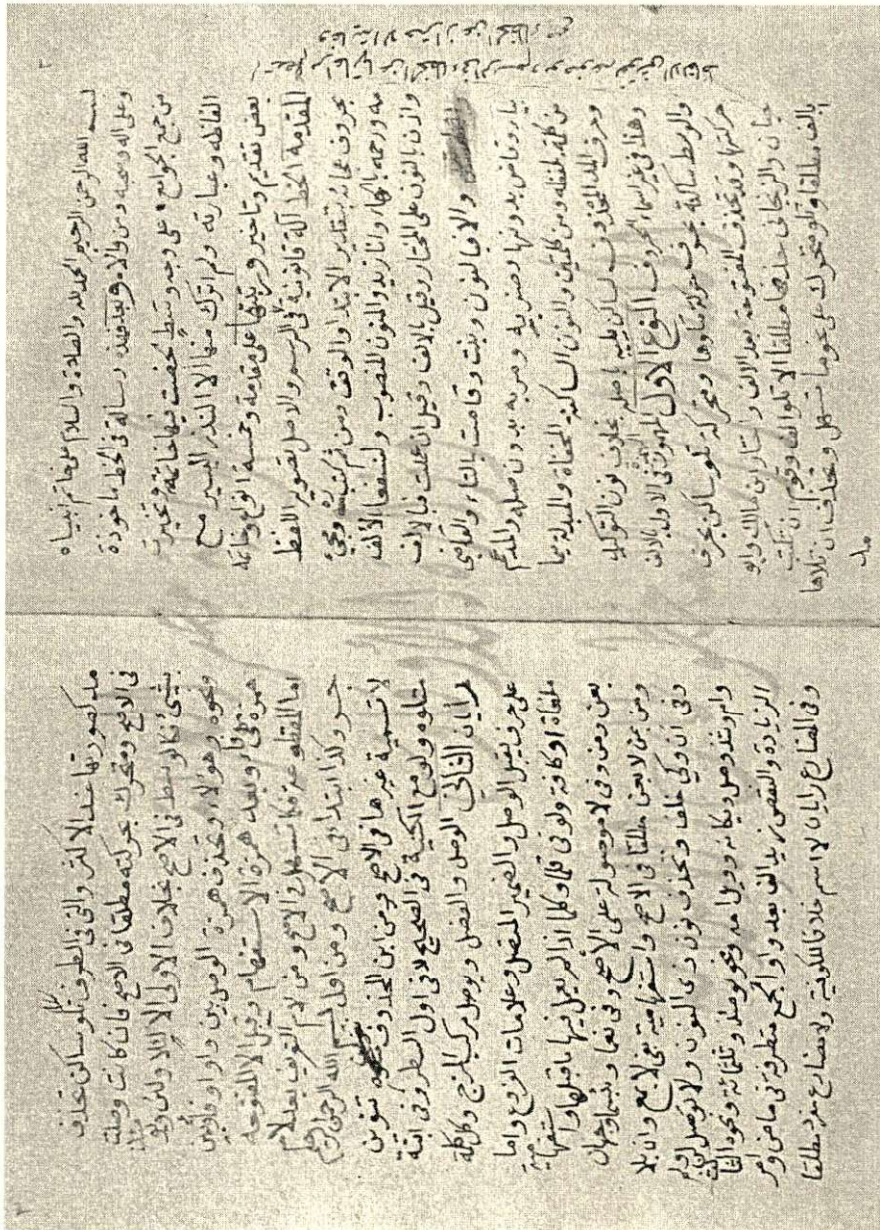 بسم الله الرحمن الرحيم الحمد لله والصلاة والسلام على خاتم انبياه
وعلى اله وصحبه ومن والاه وبعد فهذه رسالة في الخط ماخوذة
من جمع الجوامع على وجه وسط لخصت فيها خاتمته وتخيرت
الفاظه وعبارته ولم اترك منها الا النذر اليسير مع
بعض تقديم وتاخير ورتبتها على مقدمة وخمسة انواع وخاتمة
المقدمة الخط آلة قانونية في الرسم والاصل تصوير اللفظ
بحروف هجائه بتقدير الابتدا والوقف ومن ثم كتب ره ومجئ
مه ورحمه بالها وانا زيد والمنون المنصوب ولنسفعا بالالف
واذن بالنون على المختار وقيل بالالف وقيل ان عملت فبالالف
والا فبالنون وبنت وقامت بالتاء والقاضي
بيا وقاض بدونها وضربه ومر به بدون صلة والمدغم
من كلمة بلفظه ومن كلمتين والنون الساكنة المخفاة والمبدلة ميما
وحرف المد المحذوف لساكن يليه باصله بخلاف نون التوكيد
وهذا في غير اسماء الحروف النوع الاول الهمزة في الاول بالالف
والوسط ساكنة بحرف حركة متلوها ومتحركة تلو ساكن بحرف
حركتها وقد تحذف المفتوحة بعد الالف واختار ابن مالك وابو
حيان والزنجاني حذفها مطلقا الا تلو الف وقوم ان تكتب
بالف مطلقا وتلو متحرك على نحو ما تسهل وتحذف ان تلاها
مد
مد كصورتها عند الاكثر والتي في الطرف تلو ساكن تحذف
في الاصح ومتحرك بحركته مطلقا في الاصح فان كانت وصلت
بشيئ فكالوسط في الاصح بخلاف الاولى الا لئلا ولئن
ونحوه وهؤلاء وتحذف همزة الوصل بين واو او فا وبين
همزة هي فاء وبعد همزة الاستفهام وقيل الا المفتوحة
اما المقطوعة فكانت تسهل في الاصح ومن لام التعريف بعد لام
جر وكذا ابتدا في الاصح ومن اول بسم الله الرحمن الرحيم
لا تسمية غيرها في الاصح ومن ابن المحذوف تنوين
متلوه ولو مع الكنية في الصحيح لا في اول السطر وفي ابنة
رايان الثاني الوصل والفصل ويوصل مركب المزج وكل كلمة
على حرف يقبل الوصل والضمير المتصل وعلامات الفروع وما
ملغاة او كافة ولو في قلما وكلما اذا لم يعمل فيها ما قبلها واستفهامية
بعن ومن وفي لا موصولة على الاصح وفي نعما وبئسما وجهان
ومن بمن لا بعن مطلقا في الاصح واستفهامية بفي لا بمع وان بلا
وفي ان وكي خلف وتحذف نون ذي النون ولا توصل لن ولم
وام وشذ وصل ويكانه وويلمه ونحو يومئذ وثلثمائة ونحوه الثالث
الزيادة والنقص زيد الف بعد واو الجمع متطرفة في ماض وامر
وفي المضارع رايان لا اسم خلافا للكوفية ولا مضارع مفرد مطلقا